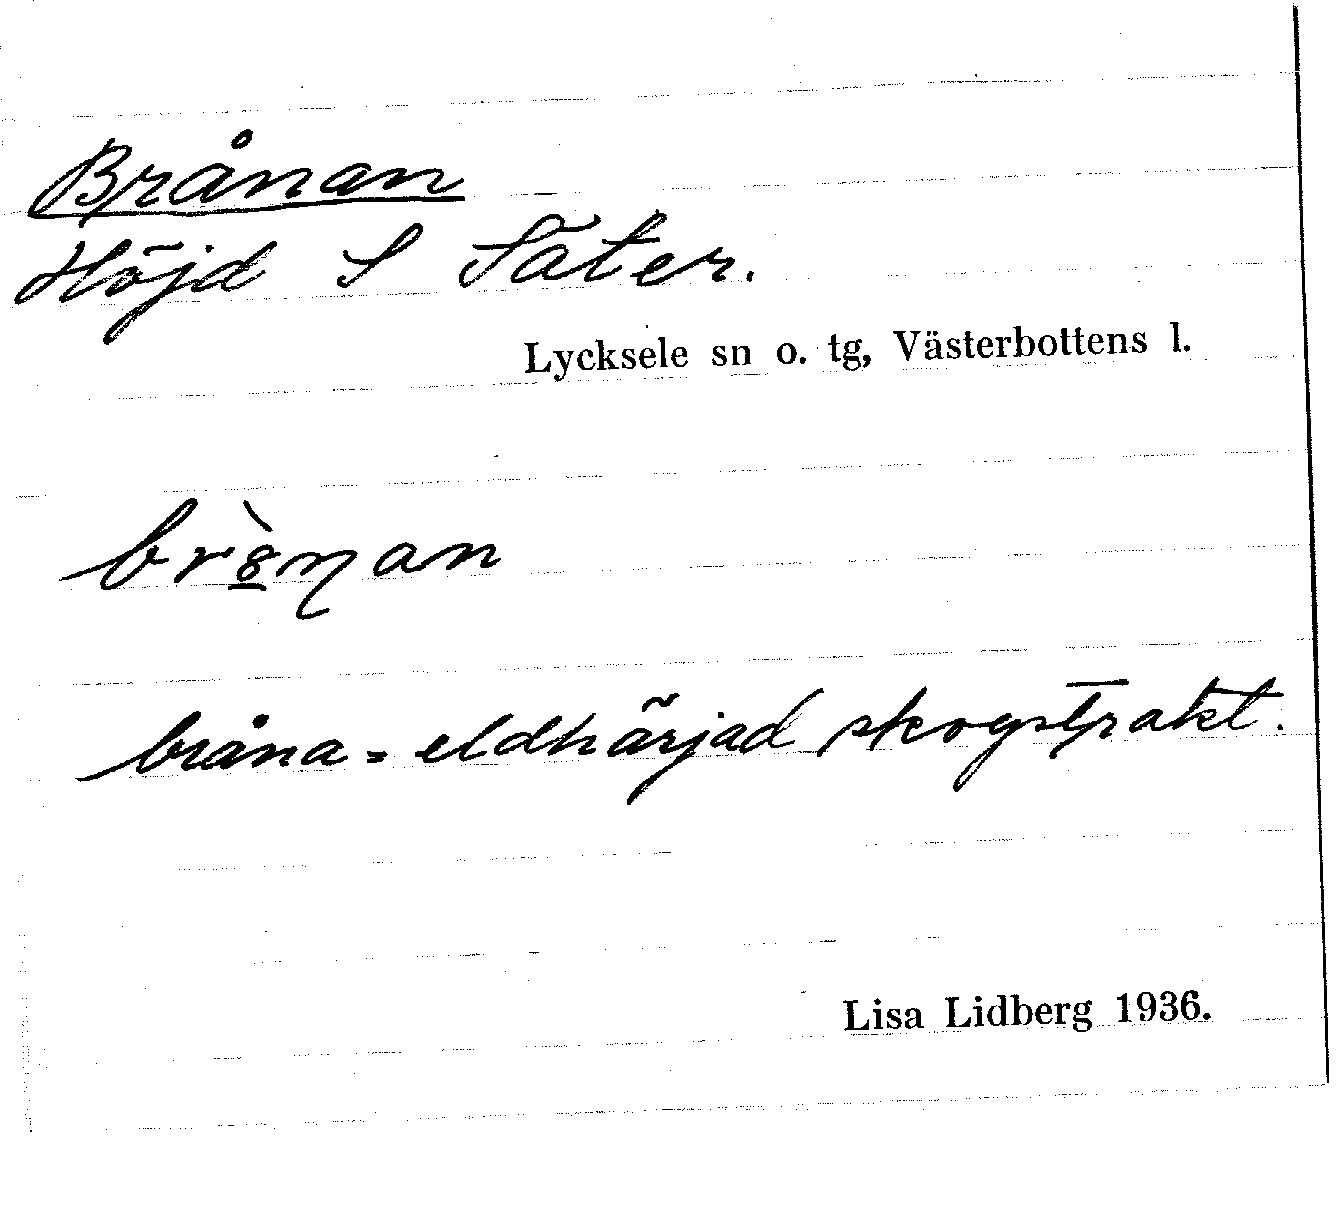 Brånan
Höjd S Säter.
Lycksele sn o. tg, Västerbottens l.
bråna = eldhärjad skogstrakt.
Lisa Lidberg 1936.